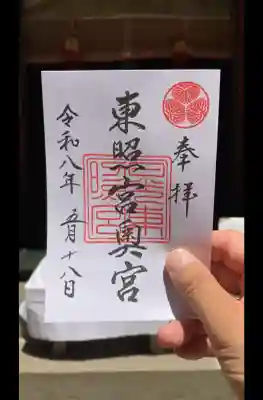 奉拝
東照宮奥宮
令和八年 五月十八日